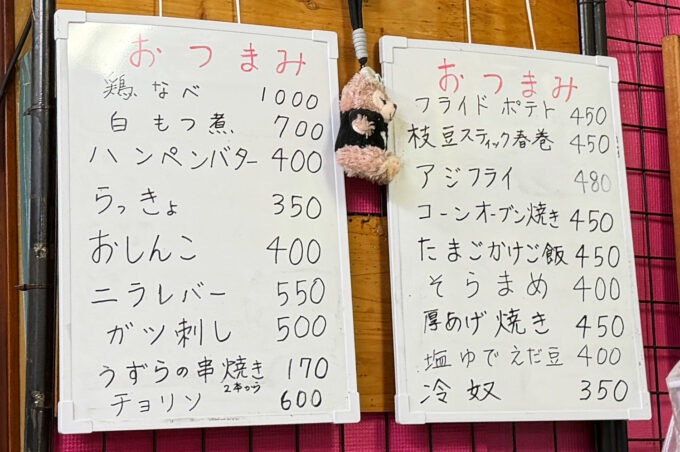 おつまみ
鶏なべ 1000
白もつ煮 700
ハンペンバター 400
らっきょ 350
おしんこ 400
ニラレバー 550
ガツ刺し 500
うずらの串焼き 170
2本から
チョリソ 600
おつまみ
フライドポテト 450
枝豆スティック春巻 450
アジフライ 480
コーンオーブン焼き 450
たまごかけご飯 450
そらまめ 400
厚あげ焼き 450
塩ゆでえだ豆 400
冷奴 350